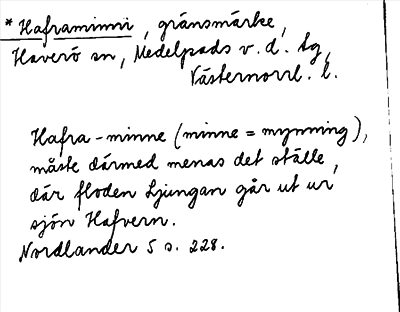 * Haframinni, gränsmärke,
Haverö sn, Medelpads v. d. tg,
Västernorrl. l.
Hafra-minne (minne = mynning),
måste därmed menas det ställe,
där floden Ljungan går ut ur
sjön Hafvern.
Nordlander 5 s. 228.